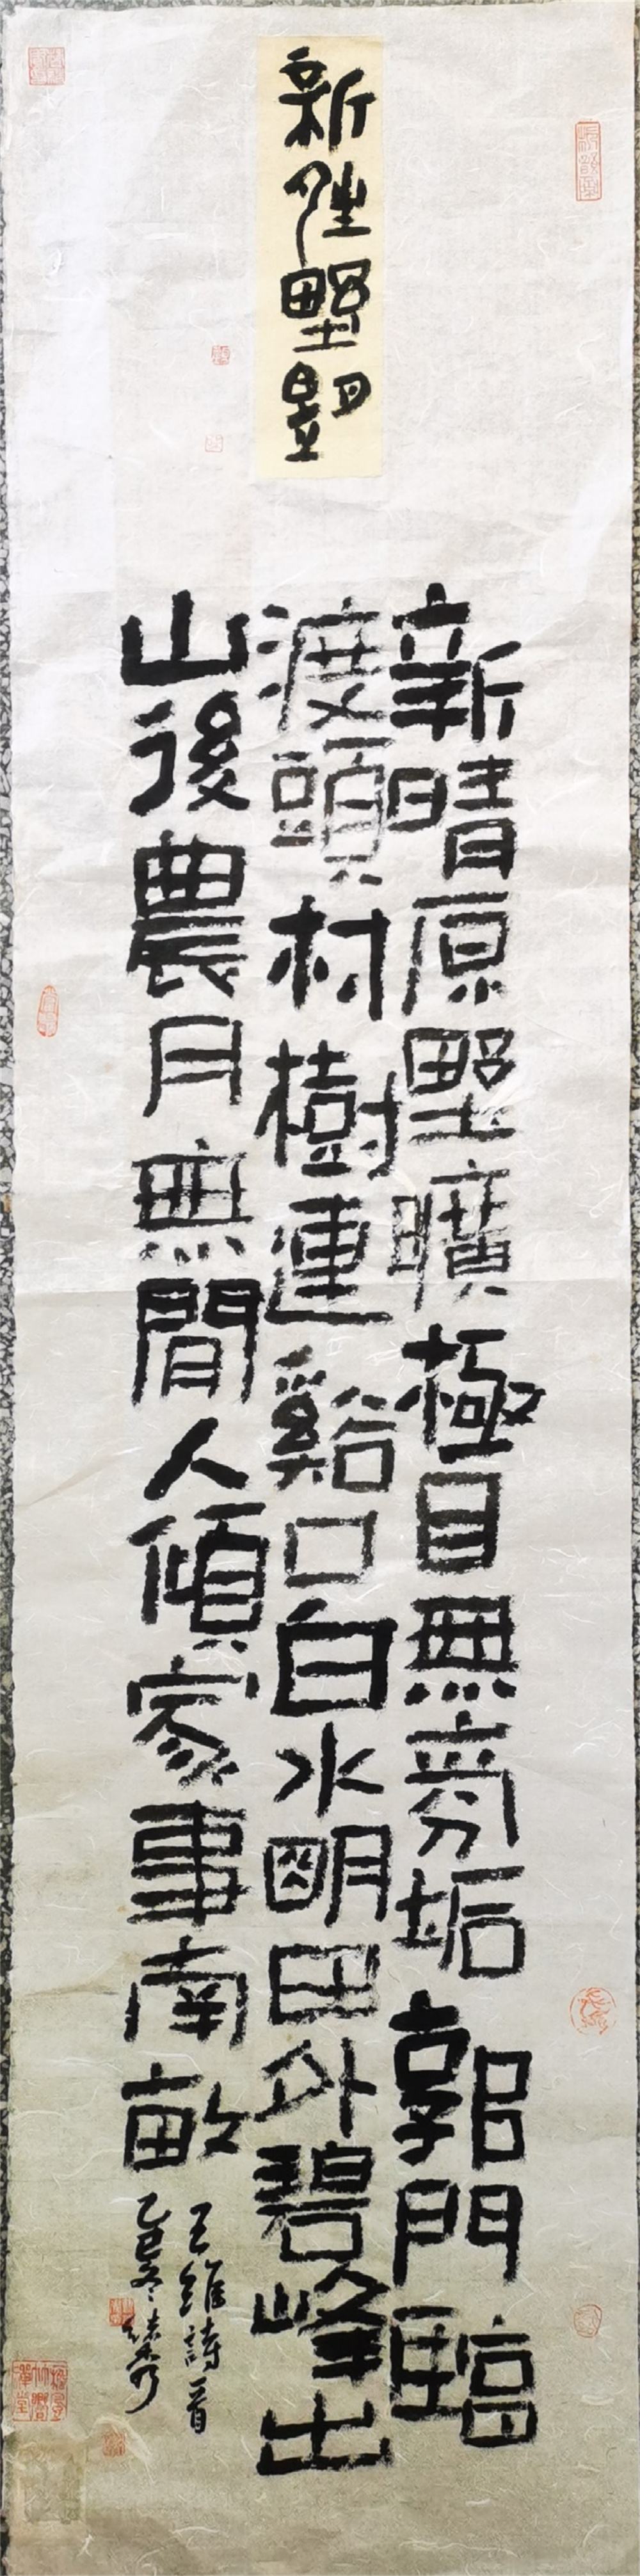 新晴野望
新晴原野曠極目無氛垢郭門臨
渡頭村樹連谿口白水明田外碧峰出
山後農月無閒人傾家事南畝
王維詩一首
乙巳冬